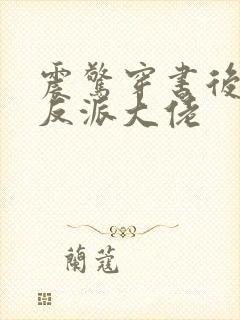 震驚穿書後
反派大佬
蘭蔻